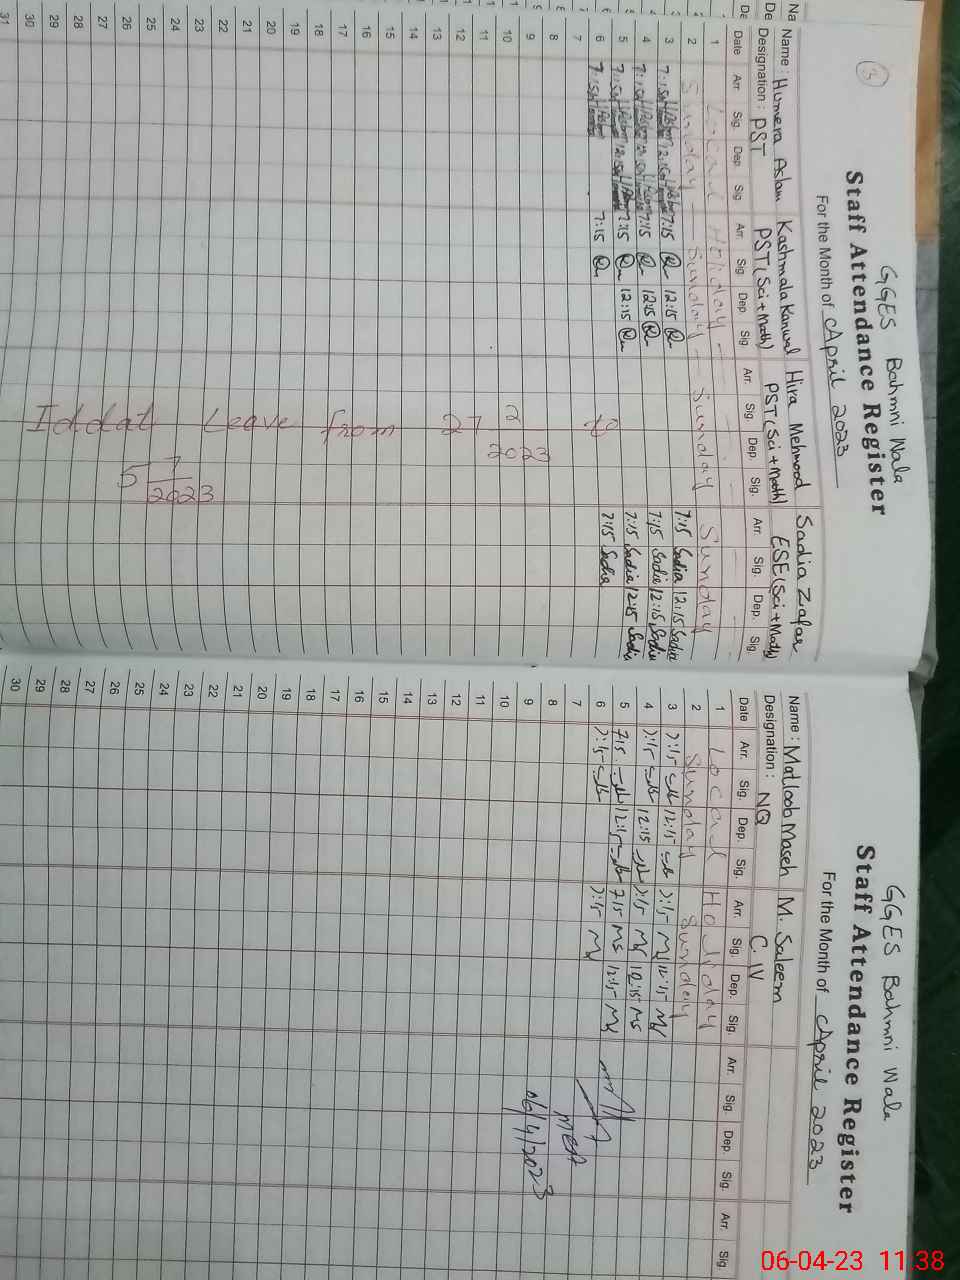 3
GGES Bahmni Wala
Staff Attendance Register
For the Month of April 2023
Name : Humera Aslam Kashmala Kanwal Hira Mehmood Sadia Zafar
Designation : PST PST(Sci+Math) PST(Sci+Math) ESE(Sci+Math)
Date Arr. Sig. Dep. Sig. Arr. Sig. Dep. Sig. Arr. Sig. Dep. Sig. Arr. Sig. Dep. Sig.
1 Local Holiday
2 Sunday Sunday Sunday Sunday
3 7:15 12:15 7:15 12:15 7:15 Sadia 12:15 Sadia
4 7:15 12:15 7:15 12:15 7:15 Sadia 12:15 Sadia
5 7:15 12:15 7:15 12:15 7:15 Sadia 12:15 Sadia
6 7:15 7:15 7:15 Sadia
7
8
9
10
11
12
13
14
15
16
17
18
19
20
21
22
23
24
25
26
27
28
29
30
31
Iddat Leave from 27 2 2023 to
5 7 2023
GGES Bahmni Wala
Staff Attendance Register
For the Month of April 2023
Name : Matloob Maseh M. Saleem
Designation : NQ C.IV
Date Arr. Sig. Dep. Sig. Arr. Sig. Dep. Sig. Arr. Sig. Dep. Sig. Arr. Sig.
1 Local Holiday
2 Sunday Sunday
3 7:15 12:15 7:15 12:15
4 7:15 12:15 7:15 12:15 MS
5 7:15 12:15 7:15 MS 12:15
6 7:15 7:15
7
8
9
10
11
12
13
14
15
16
17
18
19
20
21
22
23
24
25
26
27
28
29
30
MEA
06/4/2023
06-04-23 11:38